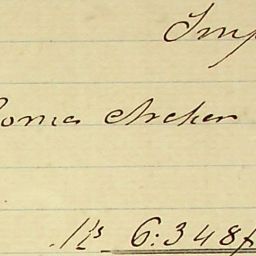 Imp
oma Archer
Rs 6:348